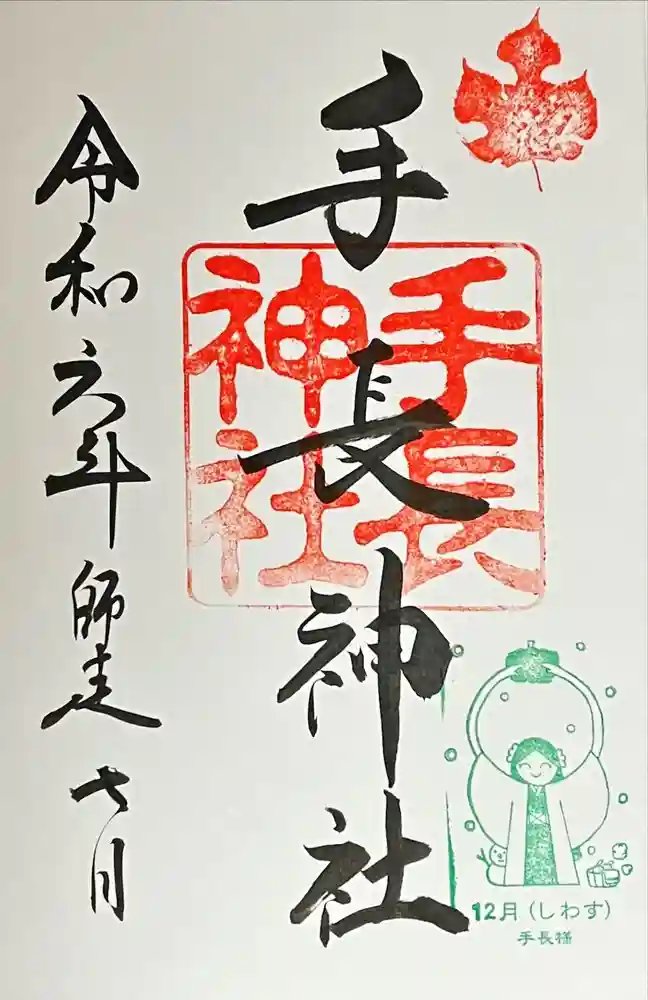 手長神社
手長
神社
令和六年 師走 七日
12月(しわす)
手長様